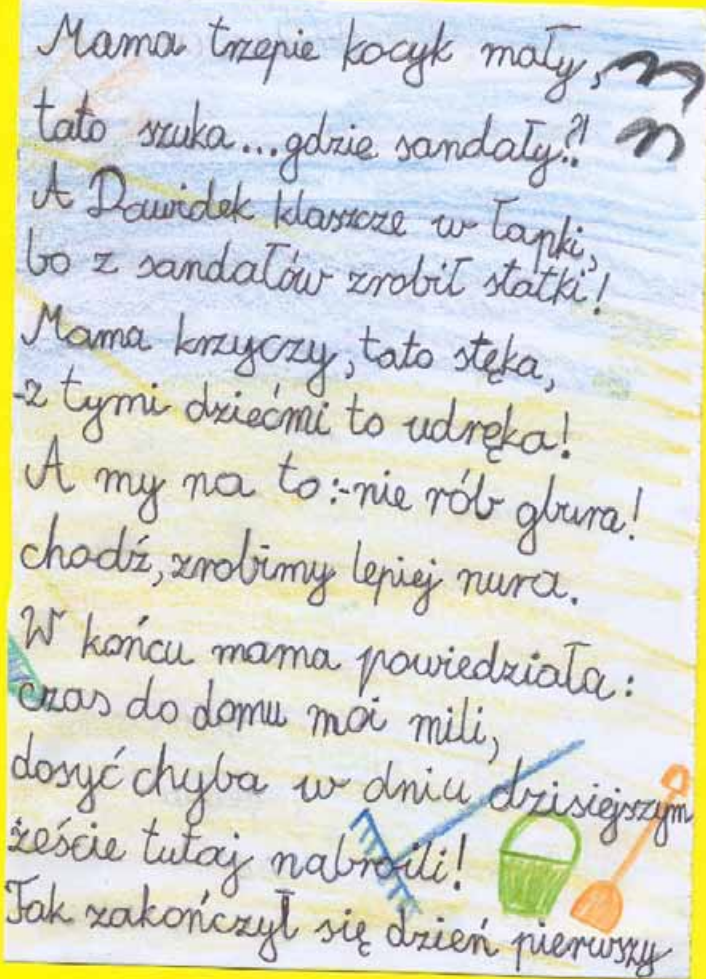 Mama trzepie kocyk mały,
tato szuka...gdzie sandały?!
A Dawidek klaszcze w łapki,
bo z sandałów zrobił statki!
Mama krzyczy, tato stęka,
-z tymi dziećmi to udręka!
A my na to:-nie rób gbura!
chodź, zrobimy lepiej nura.
W końcu mama powiedziała:
czas do domu moi mili,
dosyć chyba w dniu dzisiejszym
żeście tutaj nabroili!
Tak zakończył się dzień pierwszy